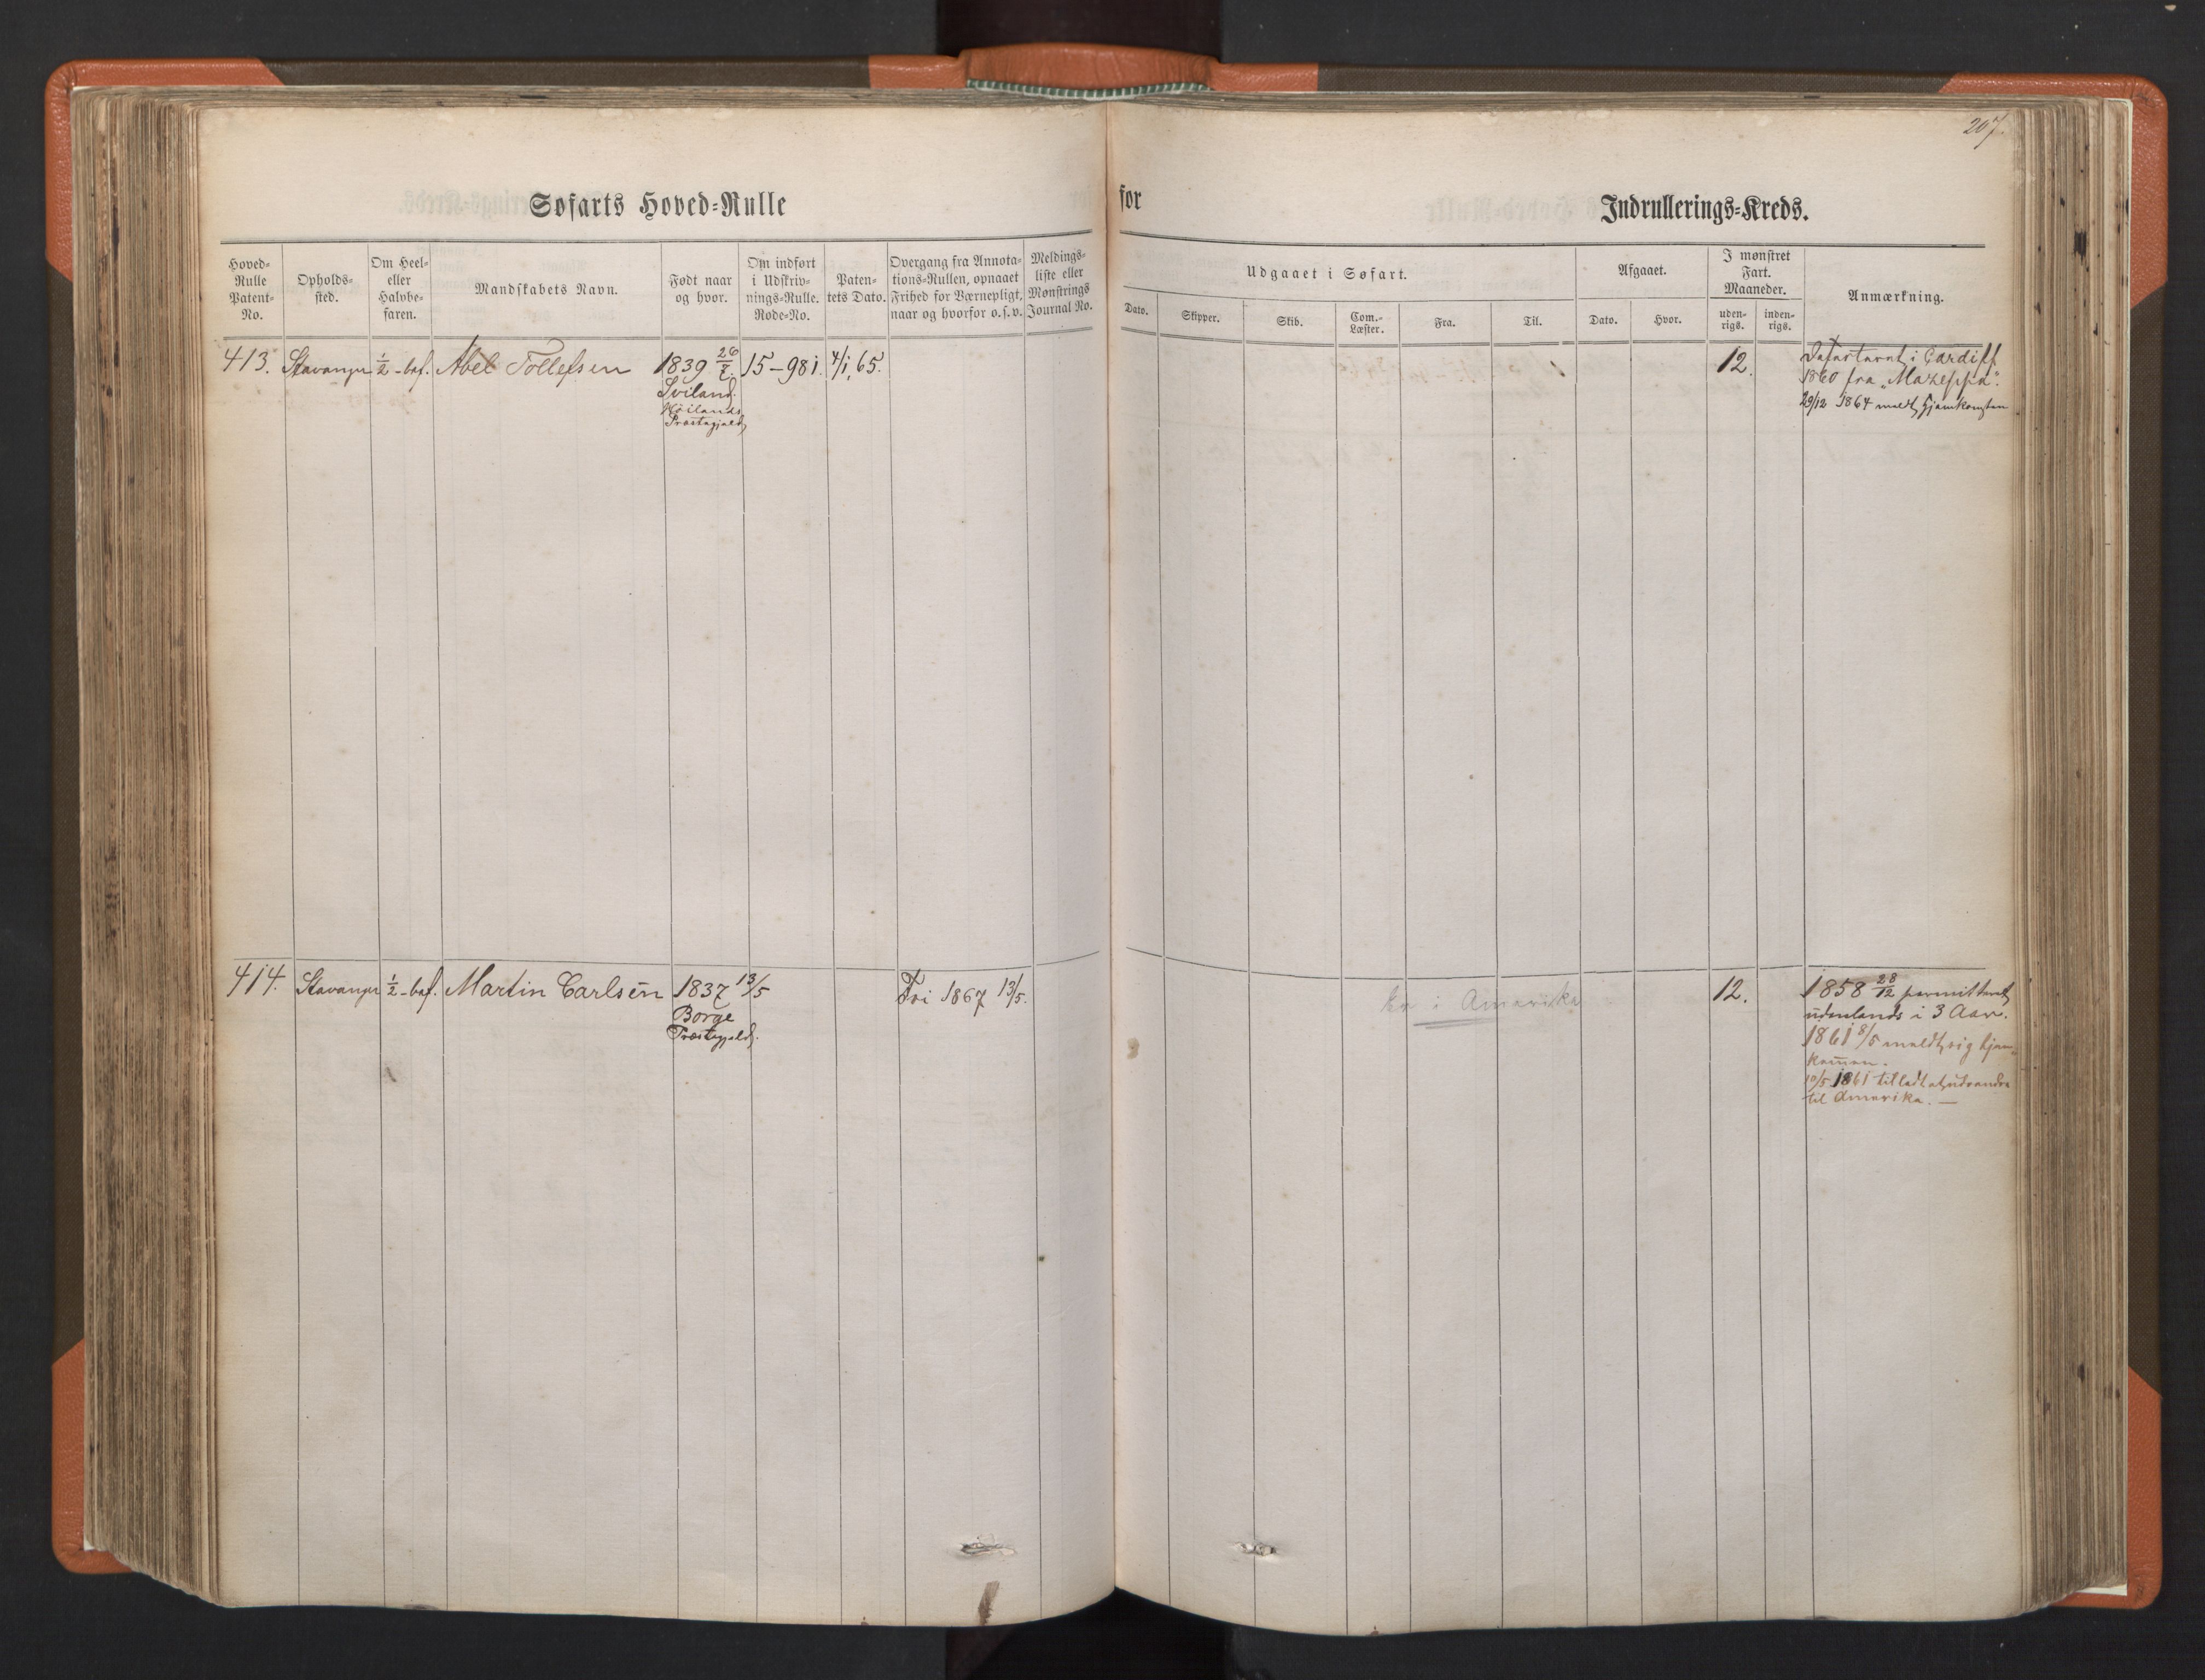 207.
Søfarts Hoved-Rulle for Indrullerings-Kreds.
Hoved-Rulle Patent-No.
Opholds-sted.
Om Heel- eller Halvbe-faren.
Mandskabets Navn.
Født naar og hvor.
Om indført i Udskriv-nings-Rulle. Rode-No.
Paten-tets Dato.
Overgang fra Annota-tions-Rullen, opnaaet Frihed for Værnepligt, naar og hvorfor o.s.v.
Meldings-liste eller Mønstrings Journal No.
Udgaaet i Søfart.
Dato.
Skipper.
Skib.
Com.-Læster.
Fra.
Til.
Afgaaet.
Dato.
Hvor.
I mønstret Fart. Maaneder.
uden-rigs.
inden-rigs.
Anmærkning.
413. Stavanger ½-bef. Abel Tollefsen 1839 26/7. 15-981. 4/1, 65. 12. Deserteret i Cardiff
Sviland. 1860 fra "Mazeppa".
Höilands 29/12 1864 meldt hjemkomsten
Præstegjeld
414. Stavanger ½-bef. Martin Carlsen 1837 13/5 Fri 1867 13/5. er i Amerika 12. 1858 28/12 permitteret
Borge udenlands i 3 Aar.
Præstegjeld. 1861 8/5 meldt sig hjem-
kommen.
10/5 1861 tilladt at udvandre
til Amerika. —